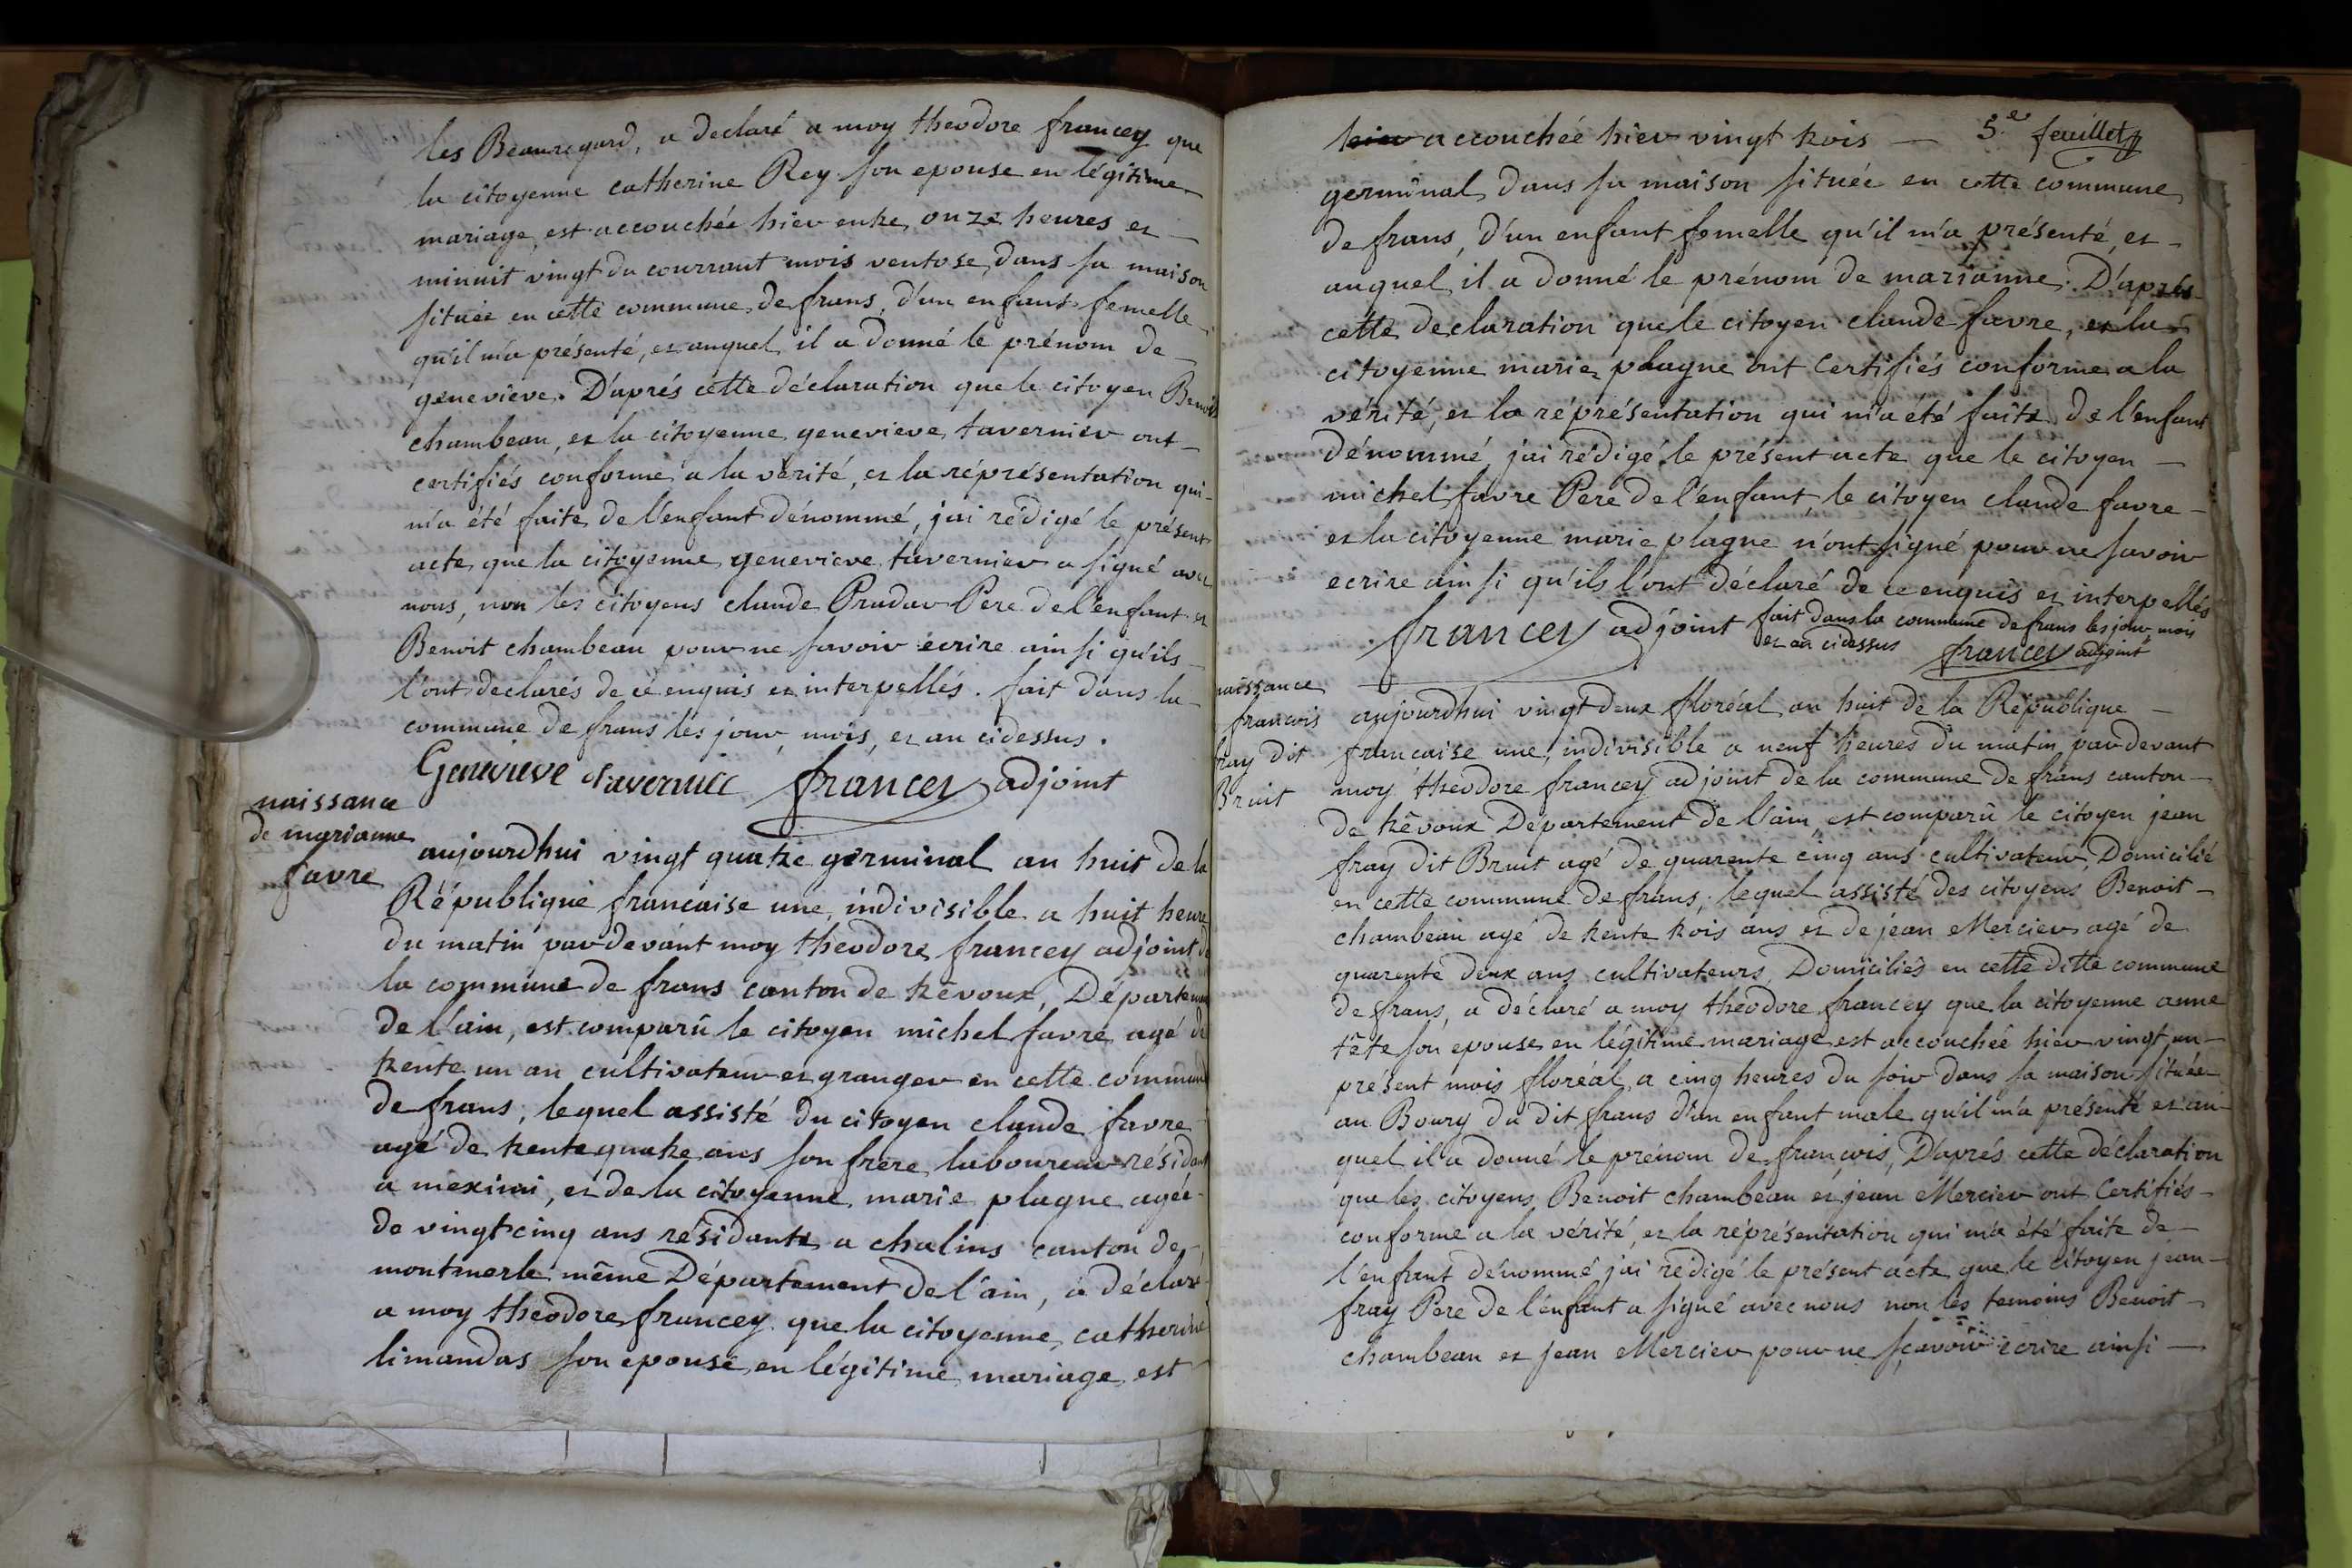 les Beauregard, a declaré a moy theodore francey que
la citoyenne catherine Rey son epouse en légitime
mariage, est accouchée hier entre onze heures et
minuit vingt du courrant mois ventose, dans sa maison
située en cette commune de frans, d'un enfant femelle
qu'il m'a présenté, et auquel il a donné le prénom de
genevieve. D'aprés cette déclaration que le citoyen Benoit
chambeau, et la citoyenne genevieve tavernier ont
certifiés conforme a la vérité, et la réprésentation qui
m'a été faite de l'enfant dénommé, j'ai rédigé le présent
acte que la citoyenne genevieve tavernier a signé avec
nous, non les citoyens claude Pradar Pere de l'enfant et
Benoit chambeau pour ne savoir écrire ainsi qu'ils
l'ont declarés de cé enquis et interpellés. fait dans la
commune de frans lés jour, mois, et an cidessus.
Genevieve tavernier francey adjoint
naissance
de marianne
favre
aujourdhui vingt quatre germinal an huit de la
République francaise une, indivisible a huit heure
du matin pardevant moy theodore francey adjoint de
la commune de frans canton de trêvoux, Département
de l'ain, est comparû le citoyen michel favre agé de
trente un an cultivateur et granger en cette commune
de frans, lequel assisté du citoyen claude favre
agé de trente quatre ans son frère laboureur résidant
a meximi, et de la citoyenne marie plagne agée
de vingt cinq ans résidante a chalins canton de
montmerle même Département de l'ain, a déclaré
a moy theodore francey que la citoyenne catherine
limandas son epouse en légitime mariage est
5.e feuillet
hier accouchée hier vingt trois
germinal dans sa maison située en cette commune
de frans, d'un enfant femelle qu'il m'a présenté, et
auquel il a donné le prénom de marianne. D'aprés
cette declaration que le citoyen claude favre, et la
citoyenne marie plagne ont certifiés conforme a la
vérité, et la réprésentation qui m'a été faite de l'enfant
dénommé j'ai rédigé le présent acte que le citoyen
michel favre Pere de l'enfant, le citoyen claude favre
et la citoyenne marie plagne n'ont signé pour ne savoir
ecrire ainsi qu'ils l'ont déclaré de ce enquis et interpellés
francey adjoint fait dans la commune de frans les jour, mois
et an cidessus francey adjoint
naissance
francois
fray dit
Bruit
aujourdhui vingt deux floréal an huit de la République
francaise une, indivisible a neuf heures du matin pardevant
moy theodore francey adjoint de la commune de frans canton
de trêvoux Département de l'ain, est comparû le citoyen jean
fray dit Bruit agé de quarente cinq ans cultivateur Domicilié
en cette commune de frans, lequel assisté des citoyens Benoit
chambeau agé de trente trois ans et de jean Mercier agé de
quarente deux ans cultivateurs Domiciliés en cette ditte commune
de frans, a déclaré a moy theodore francey que la citoyenne anne
tête son epouse en légitime mariage est accouchée hier vingt un
présent mois floréal a cinq heures du soir dans sa maison située
au Bourg du dit frans d'un enfant male qu'il m'a présenté et au
quel il a donné le prénom de francois, D'aprés cette déclaration
que les citoyens Benoit chambeau et jean Mercier ont certifiés
conforme a la vérité, et la réprésentation qui m'a été faite de
l'enfant dénommé j'ai rédigé le présent acte que le citoyen jean
fray Pere de l'enfant a signé avec nous non les temoins Benoit
chambeau et jean Mercier pour ne sçavoir écrire ainsi